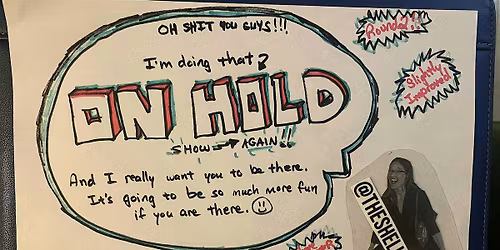 OH SHIT YOU GUYS!!!
I'm doing that?
ON HOLD
SHOW → AGAIN!!
And I really want you to be there.
It's going to be so much more fun
if you are there. ☺
Round 2!
Slightly
Improved!
@THESHEL